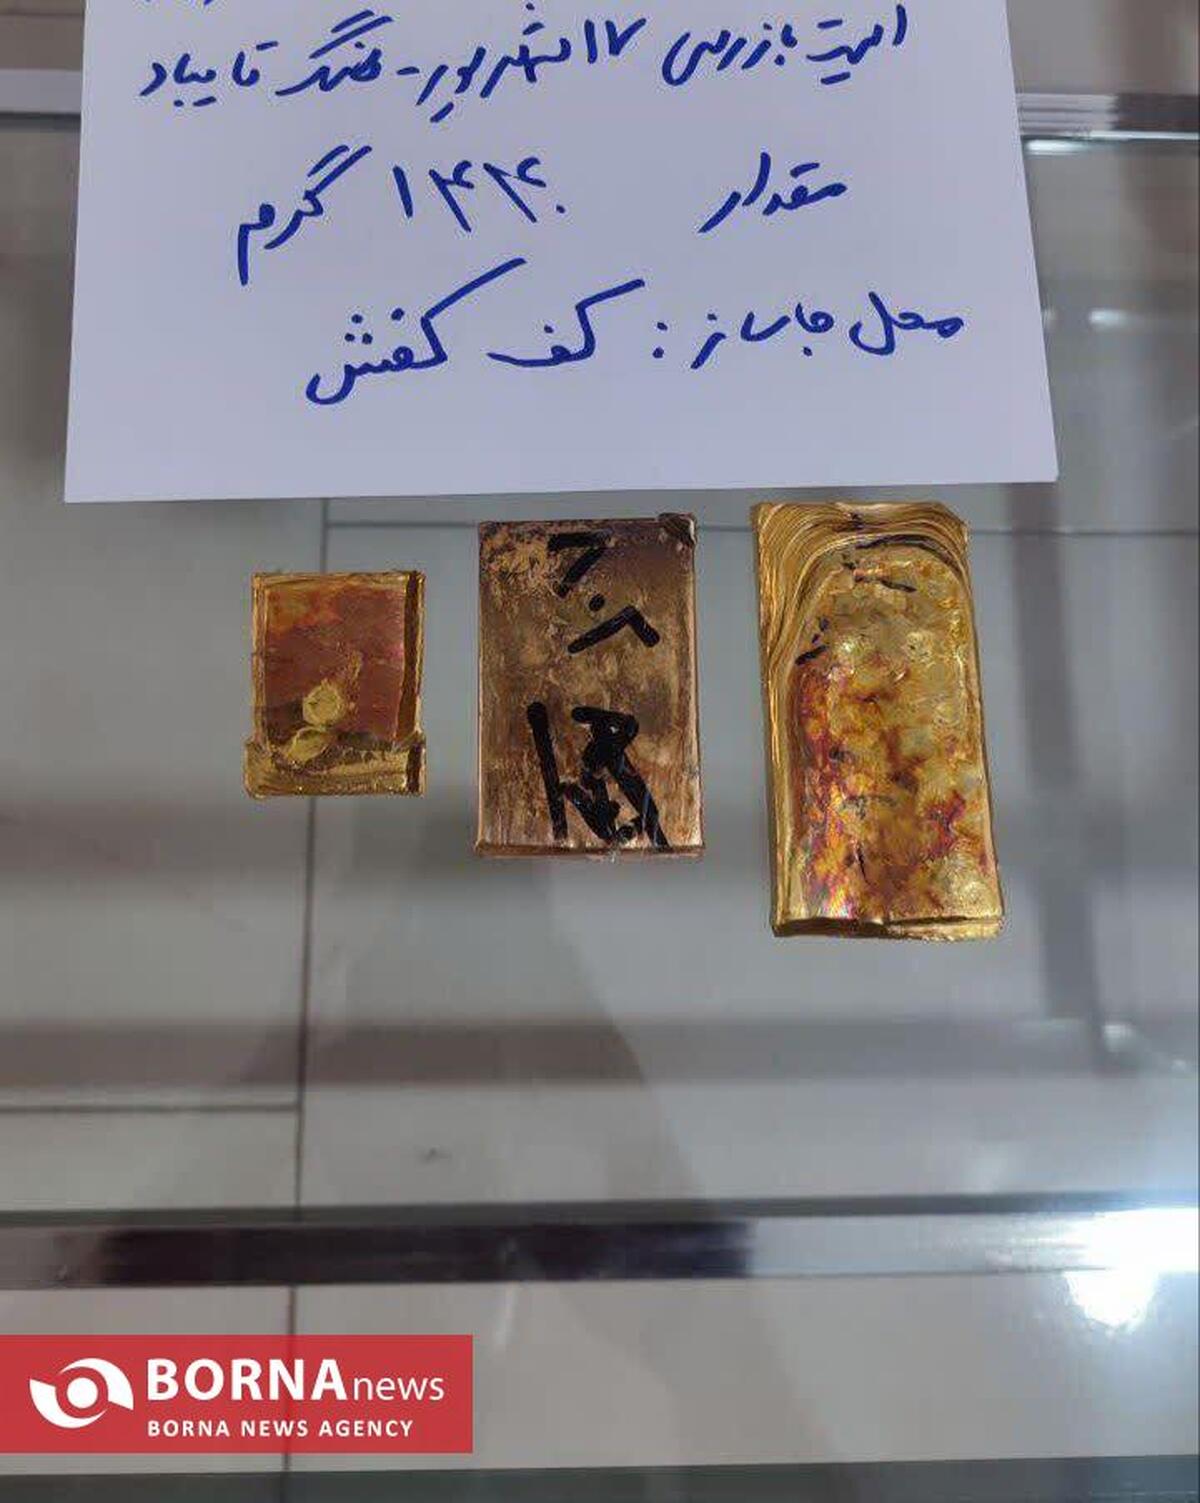 ایست بازرسی ۱۷ شهریور - هنگ تایباد
مقدار ۱۴۴۰ گرم
محل جاساز : کف کفش
BORNA news
BORNA NEWS AGENCY